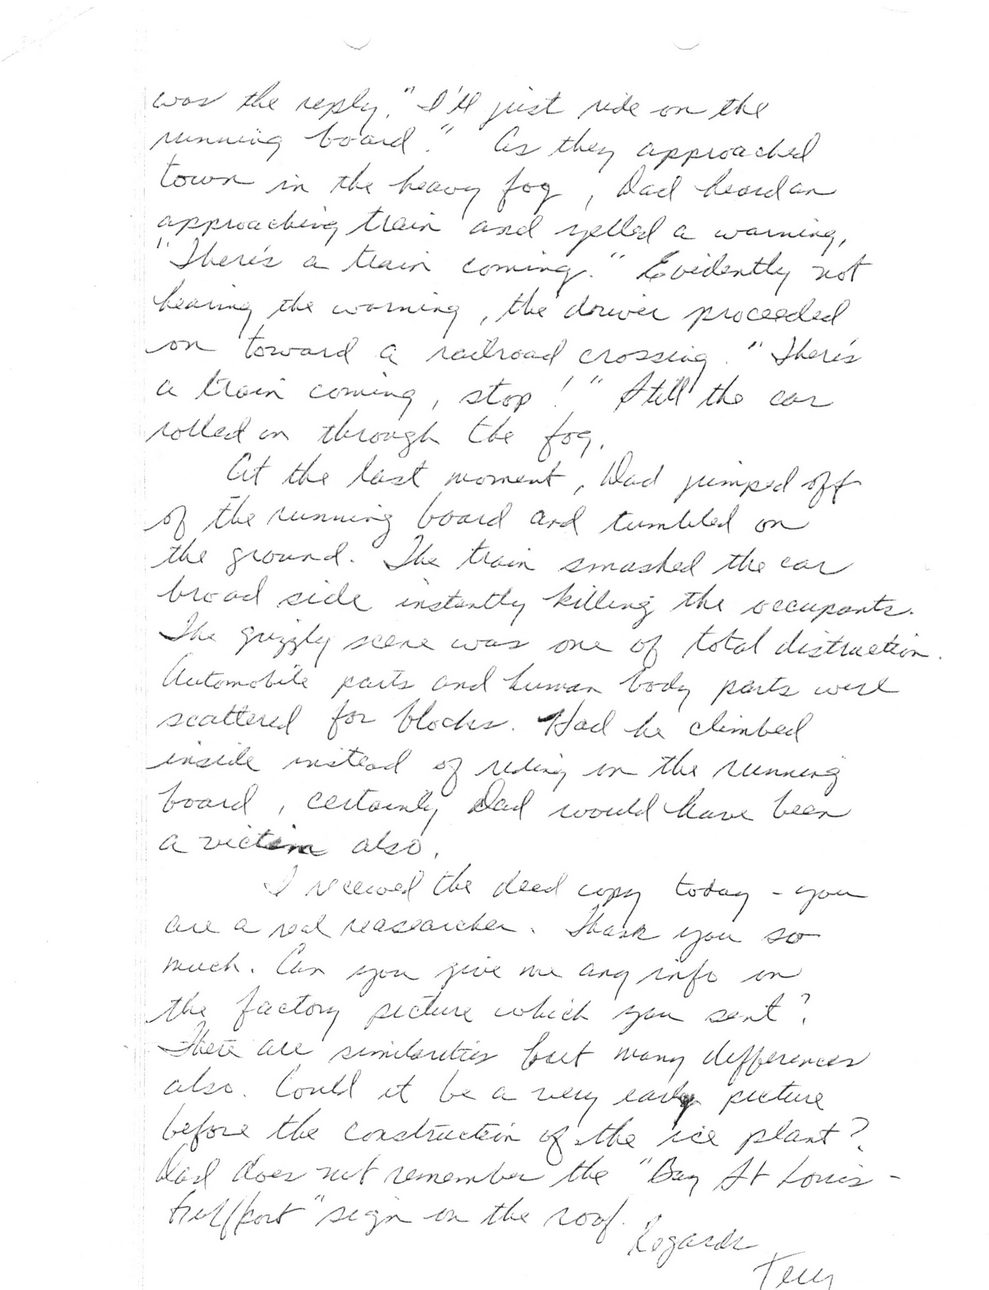 was the reply, "I'll just ride on the
running board." As they approached
town in the heavy fog, Dad heard an
approaching train and yelled a warning,
"There's a train coming." Evidently not
hearing the warning, the driver proceeded
on toward a railroad crossing. "There's
a train coming, stop!" Still the car
rolled on through the fog.
At the last moment, Dad jumped off
of the running board and tumbled on
the ground. The train smashed the car
broad side instantly killing the occupants.
The grizzly scene was one of total distruction.
Automobile parts and human body parts were
scattered for blocks. Had he climbed
inside instead of riding on the running
board, certainly Dad would have been
a victim also.
I received the deed copy today - you
are a real reasearcher. Thank you so
much. Can you give me any info on
the factory picture which you sent?
There are similarities but many differences
also. Could it be a very early picture
before the construction of the ice plant?
Dad does not remember the "Bay St Louis -
Gulfport" sign on the roof.
Regards
Terry